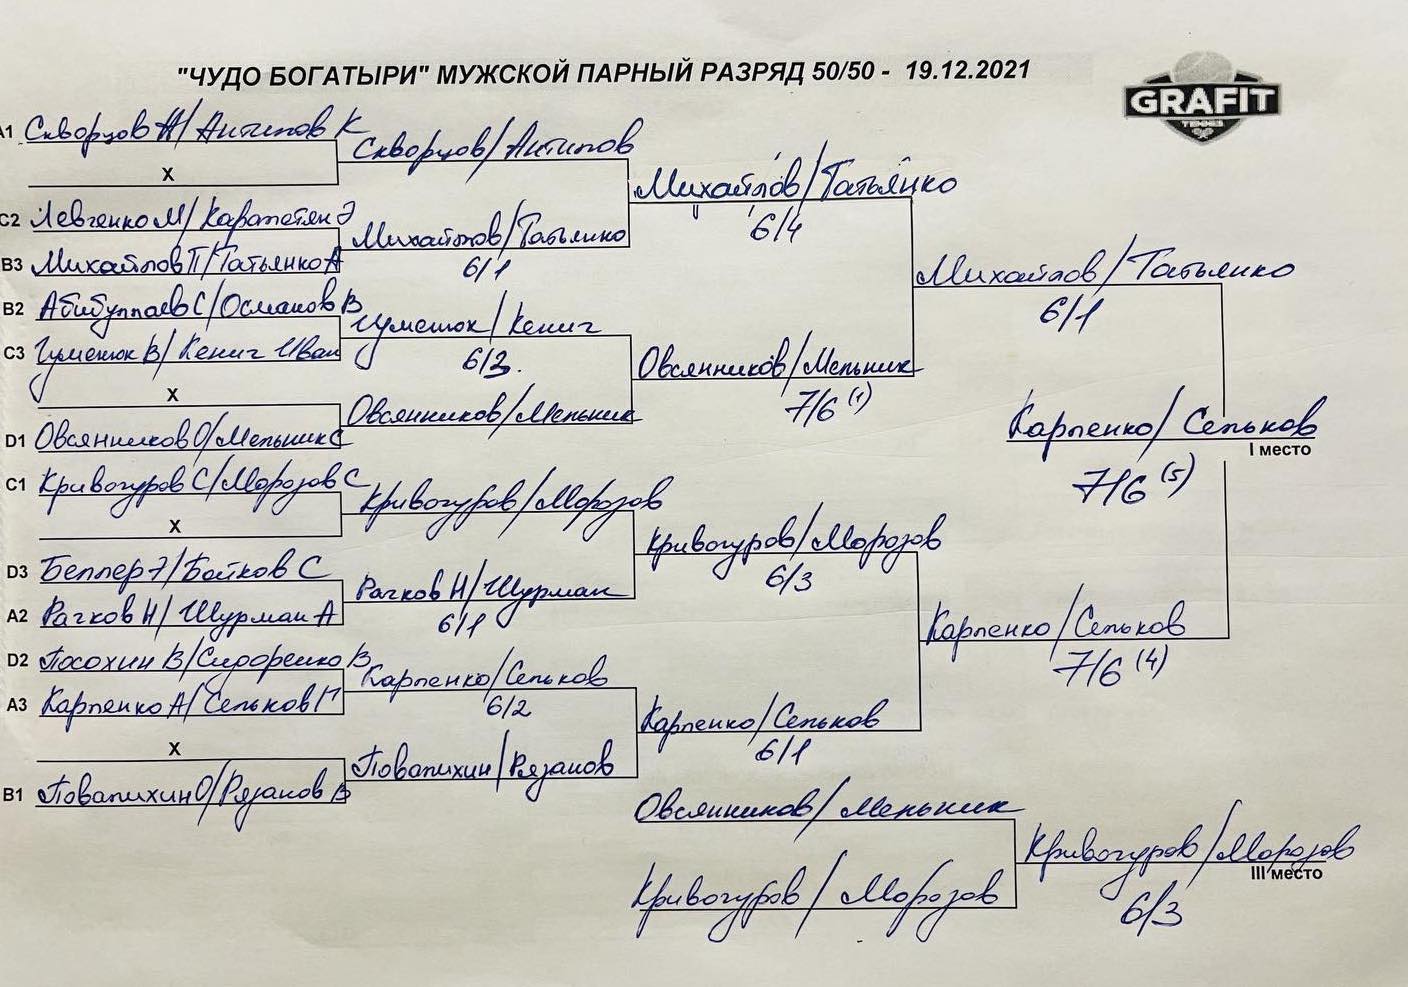 "ЧУДО БОГАТЫРИ" МУЖСКОЙ ПАРНЫЙ РАЗРЯД 50/50 - 19.12.2021
GRAFIT
TENNIS
A1 Скворцов А/Антипов К
X
Скворцов/Антипов
C2 Левченко М/Карапетян Э
B3 Михайлов П/Татьянко А
Михайлов/Татьянко
6/1
Михайлов/Татьянко
6/4
B2 Абибуллаев С/Османов В
C3 Гуменюк В/Кениг Иван
Гуменюк/Кениг
6/3.
X
D1 Овсянников О/Мельник С
Овсянников/Мельник
Овсянников/Мельник
7/6 (1)
Михайлов/Татьянко
6/1
C1 Кривогуров С/Морозов С
X
Кривогуров/Морозов
D3 Беллер Э/Бойков С
A2 Рачков Н/Шурман А
Рачков Н/Шурман
6/1
Кривогуров/Морозов
6/3
D2 Посохин В/Сидоренко В
A3 Карпенко А/Сельков П
Карпенко/Сельков
6/2
X
B1 Повалихин О/Рязанов В
Повалихин/Рязанов
Карпенко/Сельков
6/1
Карпенко/Сельков
7/6 (4)
Карпенко/Сельков
I место
7/6 (5)
Овсянников/Мельник
Кривогуров/Морозов
Кривогуров/Морозов
III место
6/3